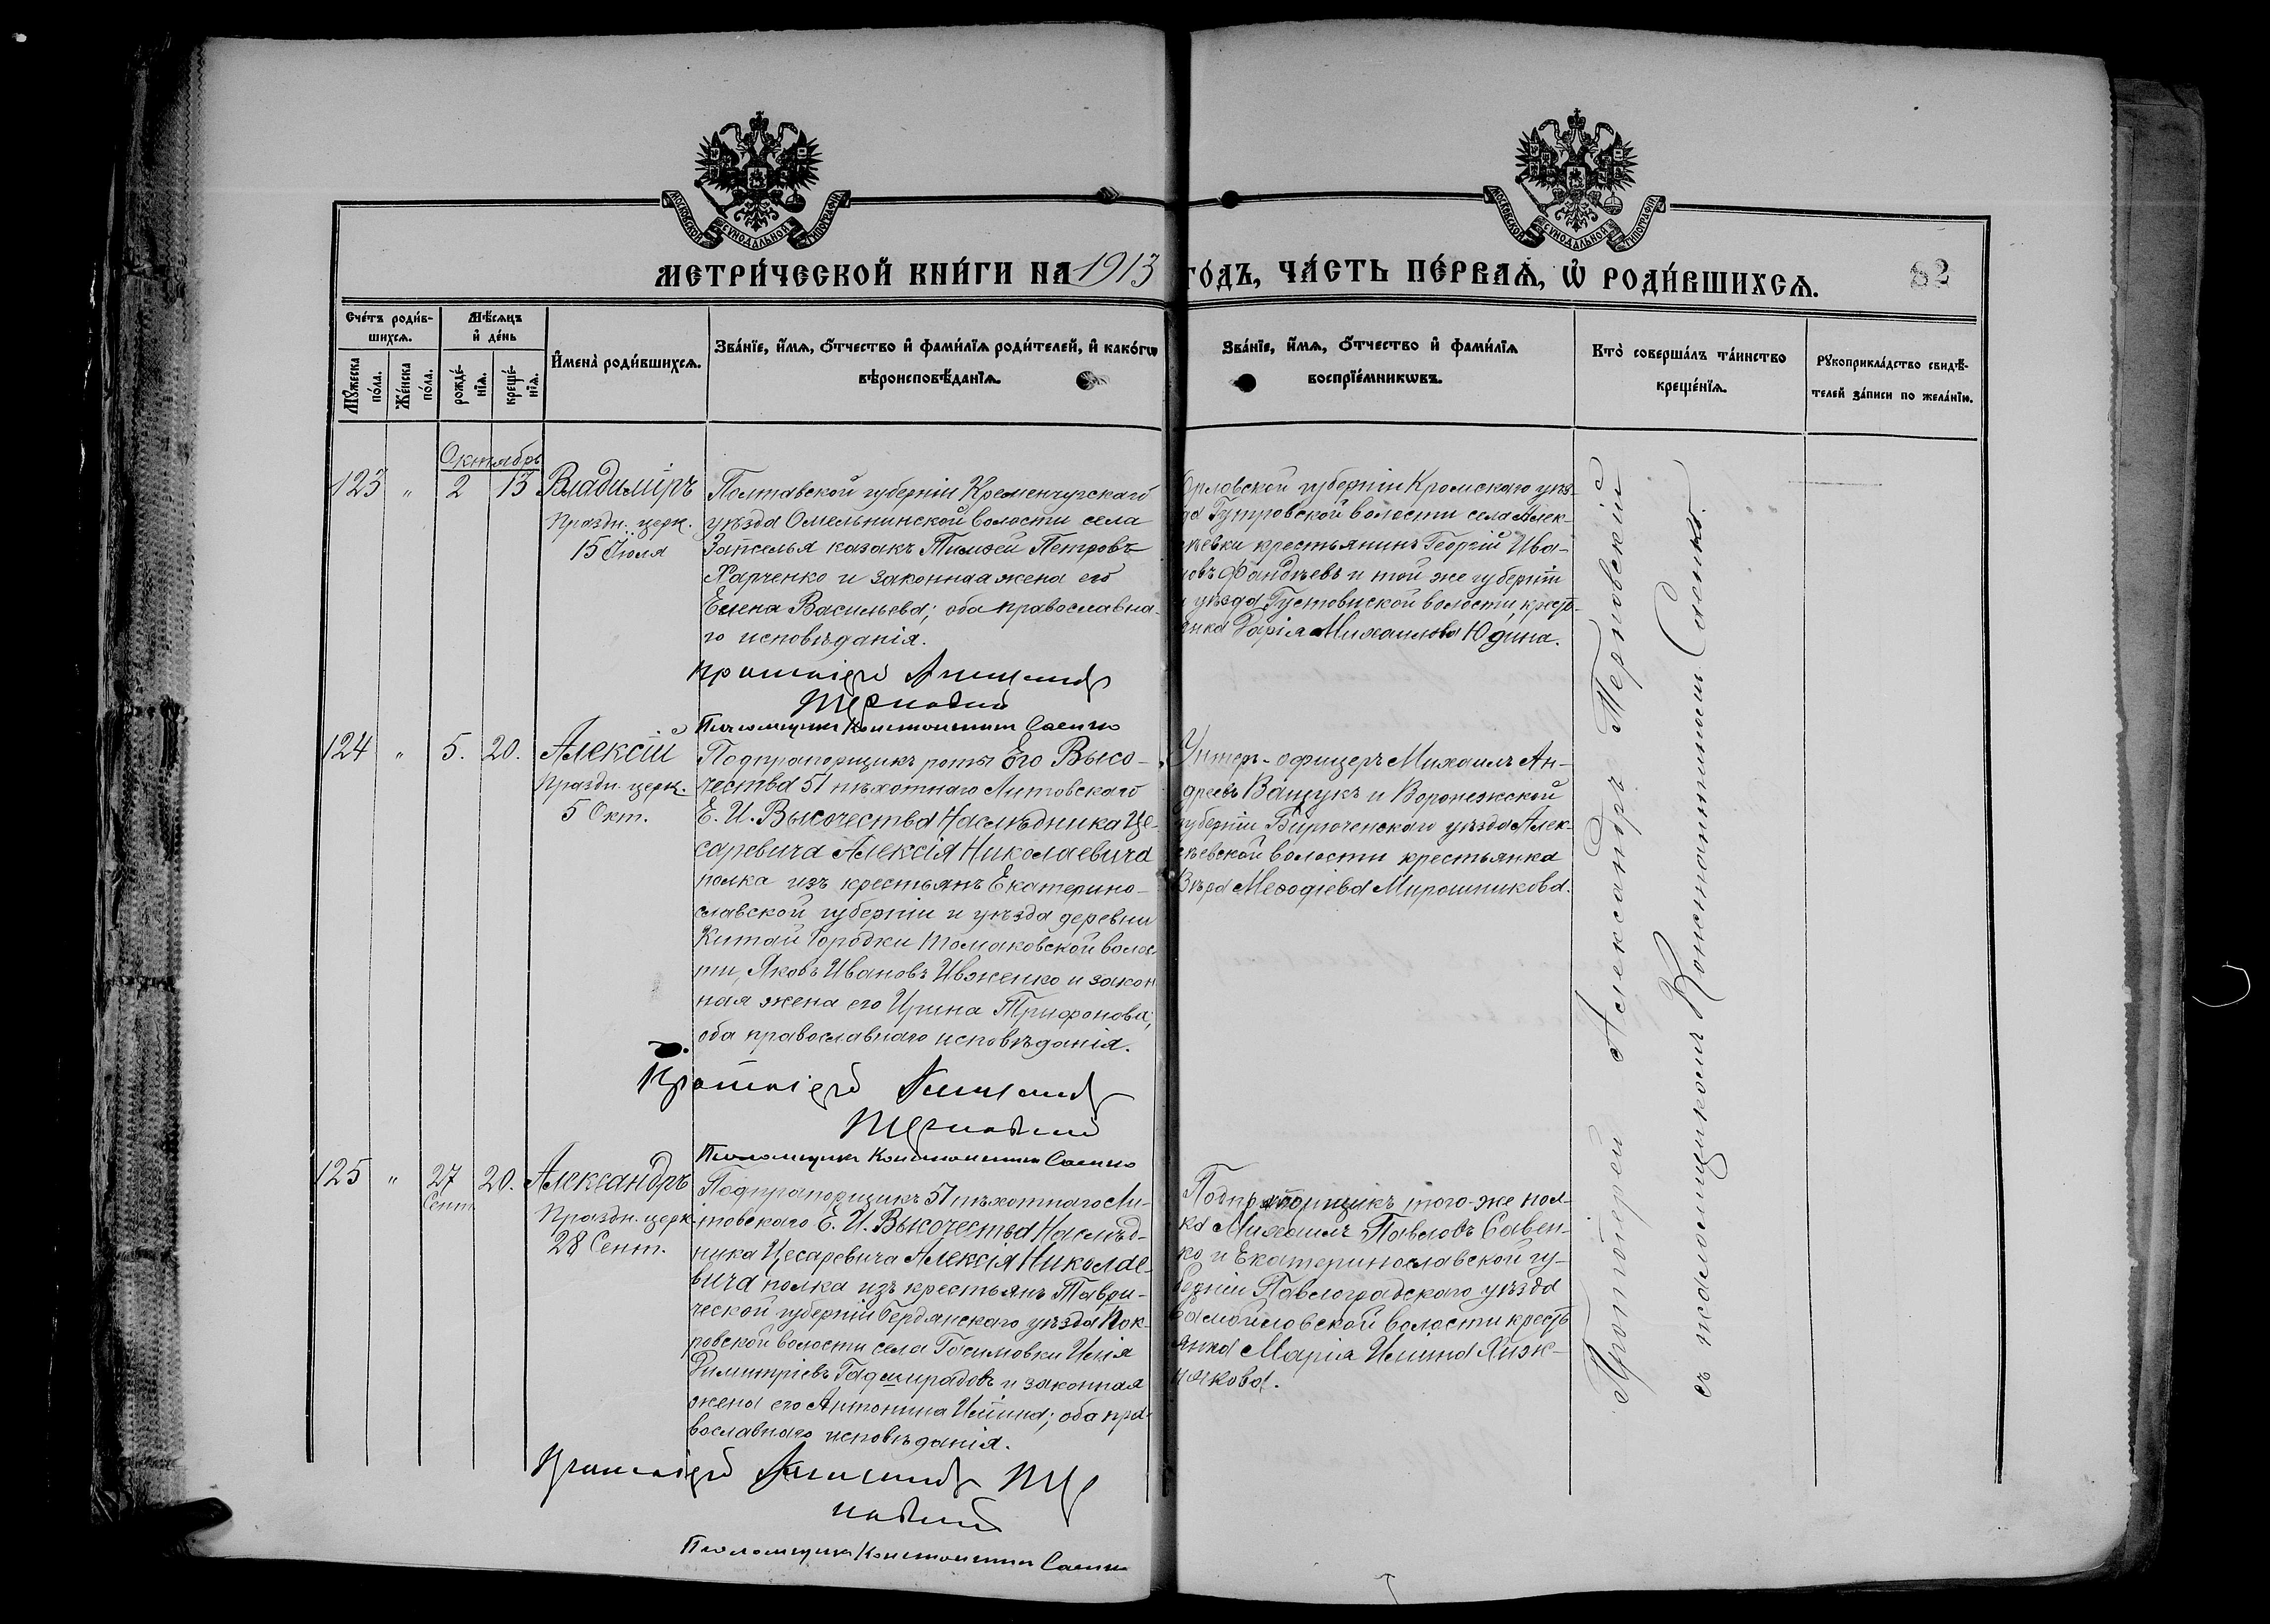 МОСКОВСКОЙ СѴНОДАЛЬНОЙ ТИПОГРАФІИ
МОСКОВСКОЙ СѴНОДАЛЬНОЙ ТИПОГРАФІИ
МЕТРИ́ЧЕСКОЙ КНИ́ГИ НА 1913 ГО́ДЪ, ЧА́СТЬ ПЕ́РВАѦ, Ѡ РОДИ́ВШИХСѦ.
82
Сче́тъ роди́в-
шихсѧ.
Мꙋ́жеска по́ла.
Же́нска по́ла.
Мѣ́сѧцъ
и҆ де́нь
рожде́-
нїѧ.
креще́-
нїѧ.
И҆мена̀ роди́вшихсѧ.
Зва́нїе, и҆́мѧ, ѻ҆́тчество и҆ фами́лїѧ роди́телей, и҆ како́гѡ
вѣроисповѣ́данїѧ.
Зва́нїе, и҆́мѧ, ѻ҆́тчество и҆ фами́лїѧ
воспрїе́мникѡвъ.
Кто̀ соверша́лъ та́инство
креще́нїѧ.
Рꙋкоприкла́дство свидѣ́-
телей за́писи по жела́нїю.
Октябрь
123 " 2 13
Владиміръ
Праздн. церк.
15 Іюля
Полтавской губерніи Кременчугскаго
уѣзда Омельникской волости села
Запселья казакъ Тимофей Петровъ
Харченко и законная жена его
Елена Васильева; оба православна-
го исповѣданія.
Протоіерей Александръ
Терновскій
Псаломщикъ Константинъ Саенко
Орловской губерніи Кромскаго уѣз-
да Гутровской волости села Алек-
сѣевки крестьянинъ Георгій Ива-
новъ Фандѣевъ и той же губерніи
и уѣзда волости, крест-
янка Дарія Михаилова Юдина.
124 " 5. 20.
Алексій
Праздн. церк.
5 Окт.
Подпрапорщикъ роты Его Высо-
чества 51 пѣхотнаго Литовскаго
Е. И. Высочества Наслѣдника Це-
саревича Алексія Николаевича
полка изъ крестьянъ Екатерино-
славской губерніи и уѣзда деревни
Китай Городки Томаковской волос-
ти, Яковъ Ивановъ Ивженко и закон
ная жена его Ирина Трифонова;
оба православнаго исповѣданія.
Протоіерей Александръ
Терновскій
Псаломщикъ Константинъ Саенко
Унтеръ-офицеръ Михаилъ Ан-
дреевъ Ващукъ и Воронежской
губерніи Бирюченскаго уѣзда Алек-
сѣевской волости крестьянка
Вѣра Меѳодіева Мирошникова.
125 " 27 20.
Сент.
Александръ
Праздн. церк.
28 Сент.
Подпрапорщикъ 51 пѣхотнаго Ли-
товскаго Е. И. Высочества Наслѣд-
ника Цесаревича Алексія Николае-
вича полка изъ крестьянъ Таври-
ческой губерніи Бердянскаго уѣзда Пок-
ровской волости села Илія
Димитріевъ и законная
жена его Антонина Ильина; оба пра-
вославнаго исповѣданія.
Протоіерей Александръ Тер
новскій
Псаломщикъ Константинъ Саенко
Подпрапорщикъ того-же пол-
ка Михаилъ Павловъ Савен-
ко и Екатеринославской гу-
берніи Павлоградскаго уѣзда
Самойловской волости крест
янка Марія Ильина Хиж-
някова.
Протоіерей Александръ Терновскій
съ псаломщикомъ Константиномъ Саенко.